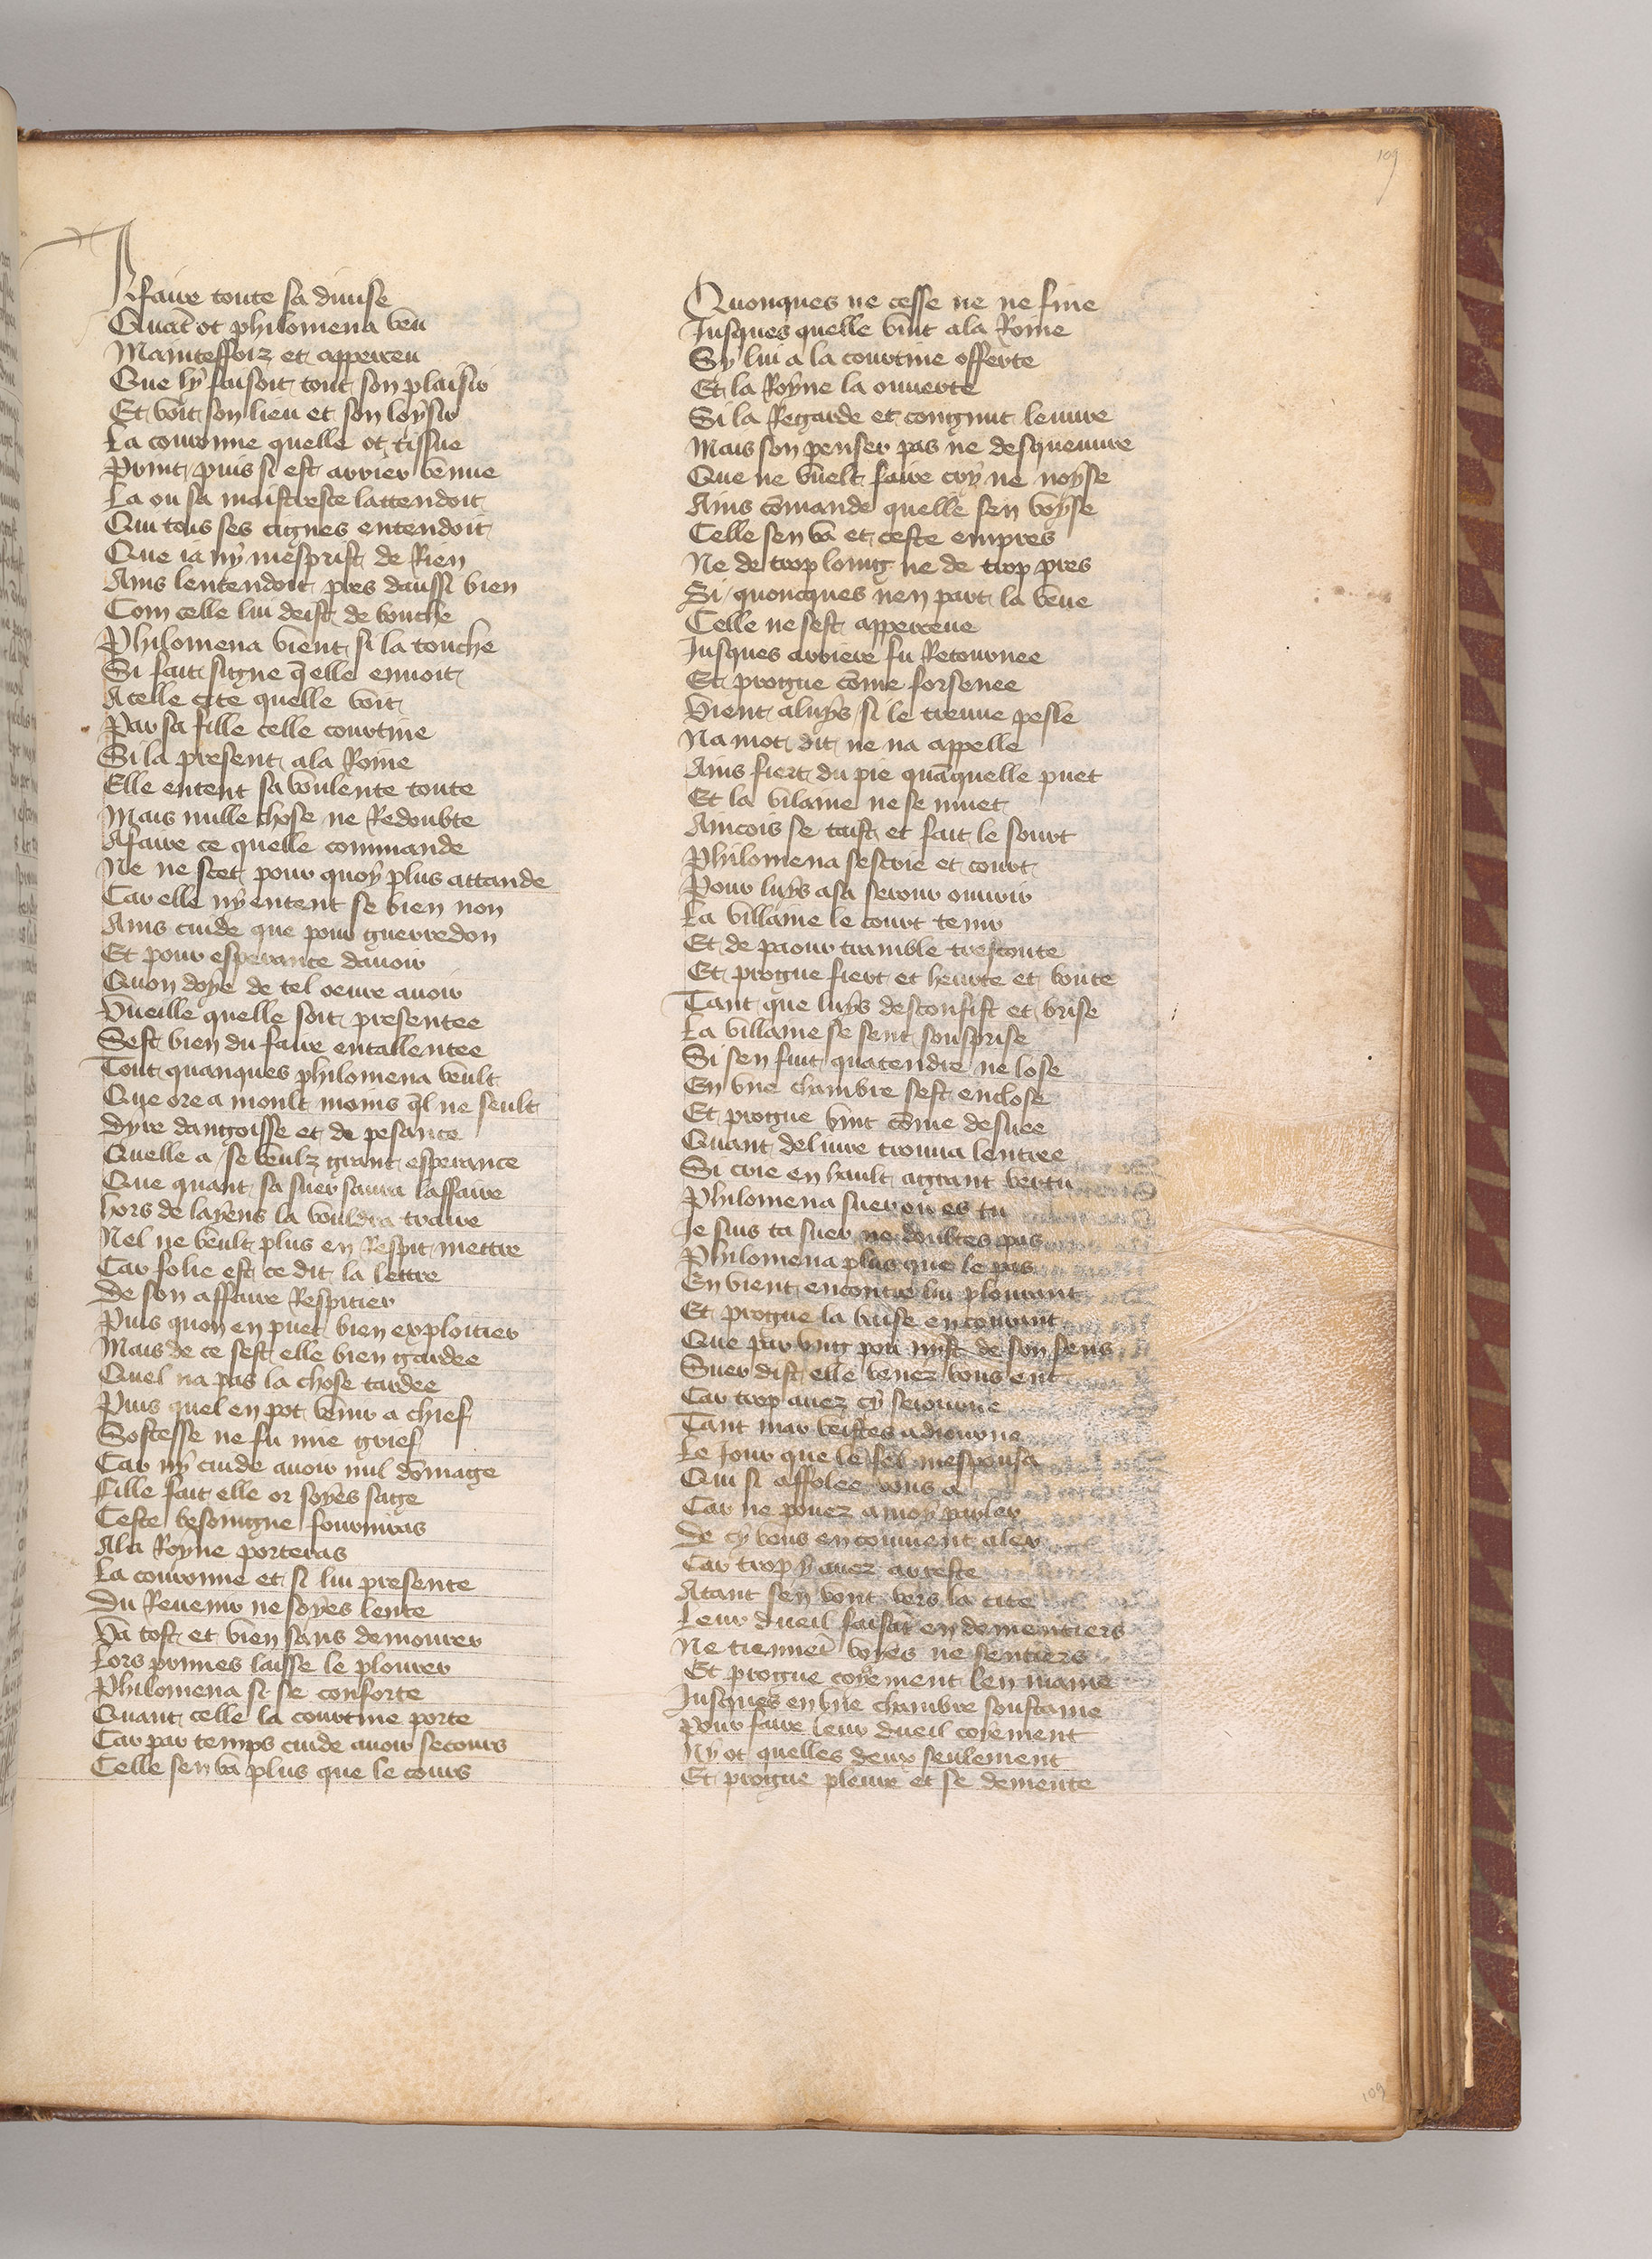 109
A faire toute sa diuise
Quāt ot philomena veu
Mainteffoiz et apperceu
Que ly faisoit tout son plaisir
Et voit son lieu et son loysir
La couronne quelle ot tissue
Print puis si est arrier venue
La ou sa maistresce lattendoit
Qui tous ses cignes entendoit
Que ia ny mesprist de Rien
Ains lentendoit pres daussi bien
Com celle lui deist de bouche
Philomena vient si la touche
Si fait signe q̄elle enuoit
A celle cite quelle voit
Par sa fille celle courtine
Si la present ala Roine
Elle entent sa voulente toute
Mais nulle chose ne Redoubte
Afaire ce quelle commande
Ne ne scet pour quoy plus attande
Car elle ny entent se bien non
Ains cuide que pour guerredon
Et pour esperance dauoir
Quon doye de tel oeure auoir
Vueille quelle soit presentee
Sest bien du faire entallentee
Tout quanques philomena veult
Que ore a moult moins q̄l ne seult
Dyre dangoisse et de pesance
Quelle a se veulz grant esperance
Que quant sa suer saura laffaire
hors de layens la vouldra traire
Nel ne veult plus en Respit mettre
Car folie est ce dit la lettre
De son affaire Respitier
Puis quon en puet bien exploitier
Mais de ce sest elle bien gardee
Quel na pas la chose tardee
Puis quel en pot venir a chief
Sostesse ne fu mie grief
Car ny cuide auoir nul dōmage
Fille fait elle or soyes sage
Ceste besoingne fourniras
Ala Royne porteras
La couronne et si lui presente
Du Reuenir ne soyes lente
Va tost et bien sans demourer
Lors primes laisse le plourer
Philomena si se conforte
Quant celle la courtine porte
Car par temps cuide auoir secours
Celle sen va plus que le cours
Quonques ne cesse ne ne fine
Jusques quelle vint ala Roine
Sy lui a la courtine offerte
Et la Royne la ouuerte
Si la Regarde et congnut leuure
Mais son penser pas ne desqueuure
Que ne vuelt faire cry ne noyse
Ains cōmande quelle sen voyse
Celle sen va et ceste empres
Ne de trop loing ne de trop pres
Si quoncques nen part la veue
Celle ne sest apperceue
Jusques arriere fu Retournee
Et progne cōme forsenee
Vient aluys si le treuue pesle
Na mot dit ne na appelle
Ains fiert du pie quāquelle puet
Et la vilaine ne se muet
Aincois se taist et fait le sourt
Philomena sescrie et court
Pour luys asa serour ouurir
La villaine le court tenir
Et de paour tramble trestoute
Et progne fiert et heurte et boute
Tant que luys desconfist et brise
La villaine se sent sousprise
Si sen fuit quatendre ne lose
En vne chambre sest enclose
Et progne vint cōme desuee
Quant deliure trouua lentree
Si crie en hault agrant vertu
Philomena suer ou es tu
Je suis ta suer ne doubtes pas
Philomena plus que le pas
En vient encontre lui plourant
Et progne la baise en courant
Que par vng pou nyst de son sens
Suer dist elle venez vous ent
Car trop auez cy seiourne
Tant mar veistes adiourne
Le Jour que le fel mespousa
Qui si affolee vous a
Car ne pouez a moy parler
De cy vous en conuient aler
Car trop y auez arreste
Atant sen vont vers la cite
Leur dueil faisāt en dementiers
Ne tiennēt voyes ne sentiers
Et progne coyement len maine
Jusques en vne chambre soustaine
Pour faire leur dueil coyement
Ny ot quelles deux seulement
Et progne pleure et se demente
109